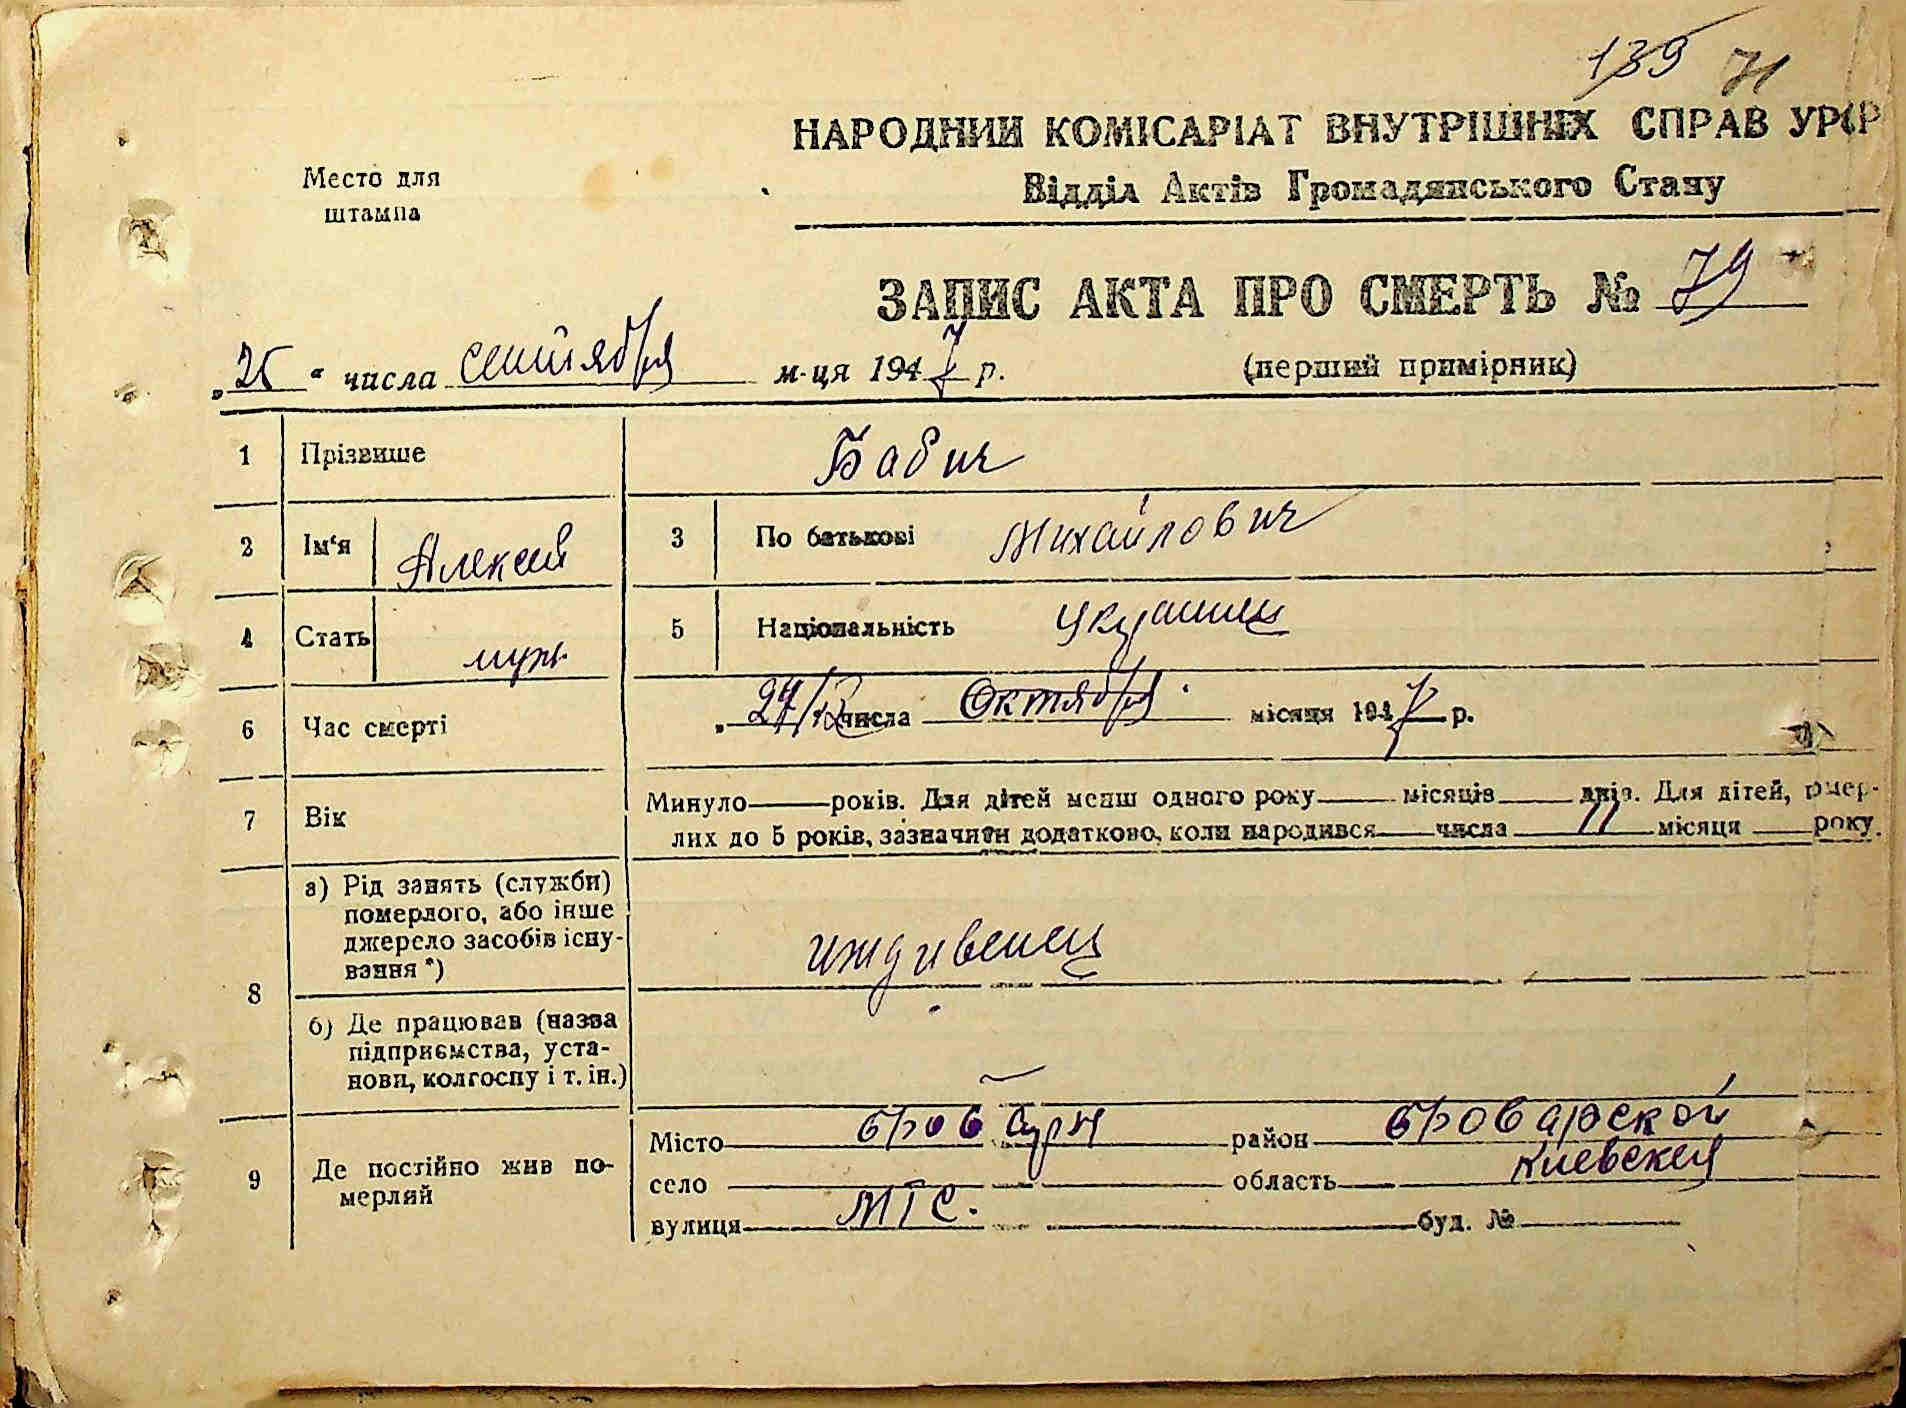 139 71
НАРОДНИЙ КОМІСАРІАТ ВНУТРІШНІХ СПРАВ УРСР
Место для
штампа
Відділ Актів Громадянського Стану
ЗАПИС АКТА ПРО СМЕРТЬ № 79
„25“ числа сентября м-ця 1947 р. (перший примірник)
1 Прізвище Бабич
2 Ім‘я Алексей 3 По батькові Михайлович
4 Стать муж. 5 Національність украинец
6 Час смерті „27/ числа Октября місяця 1947 р.
7 Вік Минуло — років. Для дітей менш одного року — місяців — днів. Для дітей, помер-
лих до 5 років, зазначити додатково, коли народився — числа 11 місяця — року.
8 а) Рід занять (служби)
померлого, або інше
джерело засобів існу-
вання *)
иждивенец
б) Де працював (назва
підприємства, уста-
нови, колгоспу і т. ін.)
9 Де постійно жив по-
мерлий
Місто Бровары район Броварской
село область Киевская
вулиця МТС. буд. №